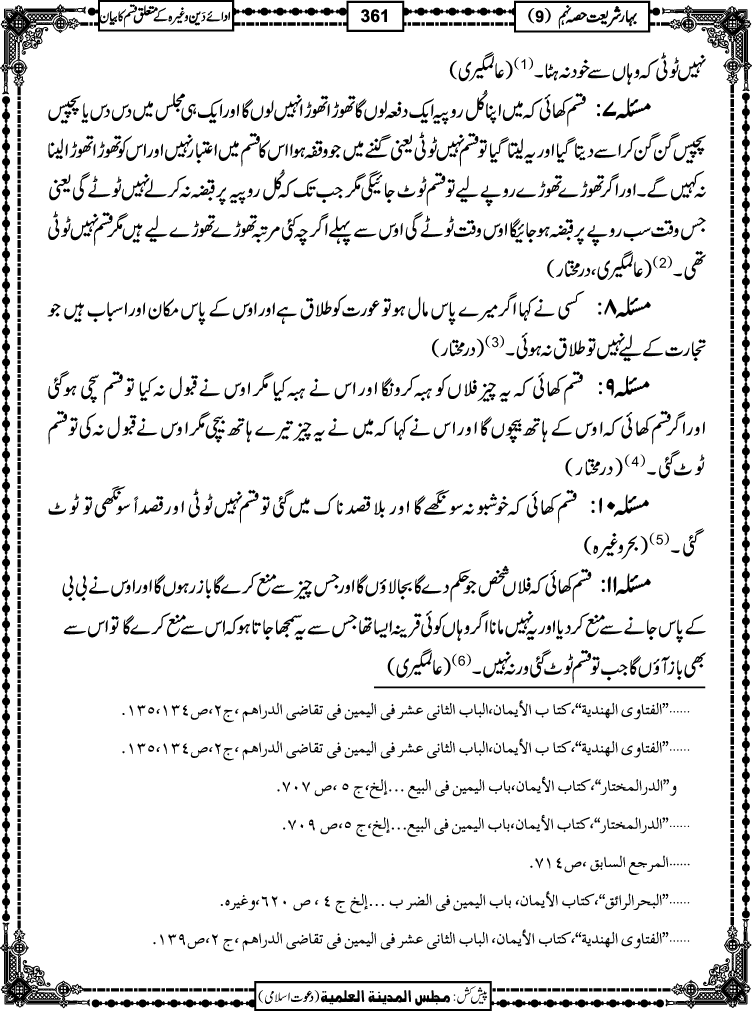 بہارِ شریعت حصہ نہم (9)
361
ادائے دَین وغیرہ کے متعلق قسم کا بیان
نہیں ٹوٹی کہ وہاں سے خود نہ ہٹا۔(1) (عالمگیری)
مسئلہ ۷: قسم کھائی کہ میں اپنا کُل روپیہ ایک دفعہ لوں گا تھوڑا تھوڑا نہیں لوں گا اور ایک ہی مجلس میں دس دس یا پچیس
پچیس گن گن کر اسے دیتا گیا اور یہ لیتا گیا تو قسم نہیں ٹوٹی یعنی گننے میں جو وقفہ ہوا اس کا قسم میں اعتبار نہیں اور اس کو تھوڑا تھوڑا لینا
نہ کہیں گے۔ اور اگر تھوڑے تھوڑے روپے لیے تو قسم ٹوٹ جائیگی مگر جب تک کہ کُل روپیہ پر قبضہ نہ کرلے نہیں ٹوٹے گی یعنی
جس وقت سب روپے پر قبضہ ہو جائیگا اوس وقت ٹوٹے گی اوس سے پہلے اگرچہ کئی مرتبہ تھوڑے تھوڑے لیے ہیں مگر قسم نہیں ٹوٹی
تھی۔(2) (عالمگیری، درمختار)
مسئلہ ۸: کسی نے کہا اگر میرے پاس مال ہو تو عورت کو طلاق ہے اور اوس کے پاس مکان اور اسباب ہیں جو
تجارت کے لیے نہیں تو طلاق نہ ہوئی۔(3) (درمختار)
مسئلہ ۹: قسم کھائی کہ یہ چیز فلاں کو ہبہ کرونگا اور اس نے ہبہ کیا مگر اوس نے قبول نہ کیا تو قسم سچی ہوگئی
اور اگر قسم کھائی کہ اوس کے ہاتھ بیچوں گا اور اس نے کہا کہ میں نے یہ چیز تیرے ہاتھ بیچی مگر اوس نے قبول نہ کی تو قسم
ٹوٹ گئی۔(4) (درمختار)
مسئلہ ۱۰: قسم کھائی کہ خوشبو نہ سونگھے گا اور بلا قصد ناک میں گئی تو قسم نہیں ٹوٹی اور قصداً سونگھی تو ٹوٹ
گئی۔(5) (بحر وغیرہ)
مسئلہ ۱۱: قسم کھائی کہ فلاں شخص جو حکم دے گا بجالاؤں گا اور جس چیز سے منع کرے گا باز رہوں گا اور اوس نے بی بی
کے پاس جانے سے منع کر دیا اور یہ نہیں مانا اگر وہاں کوئی قرینہ ایسا تھا جس سے یہ سمجھا جاتا ہو کہ اس سے منع کرے گا تو اس سے
بھی باز آؤں گا جب تو قسم ٹوٹ گئی ورنہ نہیں۔(6) (عالمگیری)
......”الفتاوی الهندية“،کتا ب الأيمان،الباب الثانی عشر فی اليمين فی تقاضی الدراهم ،ج٢،ص١٣٥،١٣٤.
......”الفتاوی الهندية“،کتاب الأيمان،الباب الثانی عشر فی اليمين فی تقاضی الدراهم ،ج٢،ص١٣٥،١٣٤.
و”الدرالمختار“،کتاب الأيمان،باب اليمين فی البيع ...إلخ،ج ٥ ،ص ٧٠٧.
......”الدرالمختار“،کتاب الأيمان،باب اليمين فی البيع...إلخ،ج ٥،ص ٧٠٩.
......المرجع السابق ،ص٧١٤.
......”البحرالرائق“،کتاب الأيمان، باب اليمين فی الضر ب ...إلخ ج ٤ ، ص ٦٢٠،وغيره.
......”الفتاوی الهندية“،کتاب الأيمان، الباب الثانی عشر فی اليمين فی تقاضی الدراهم ،ج ٢،ص١٣٩.
پیش کش: مجلس المدينة العلمية (دعوت اسلامی)